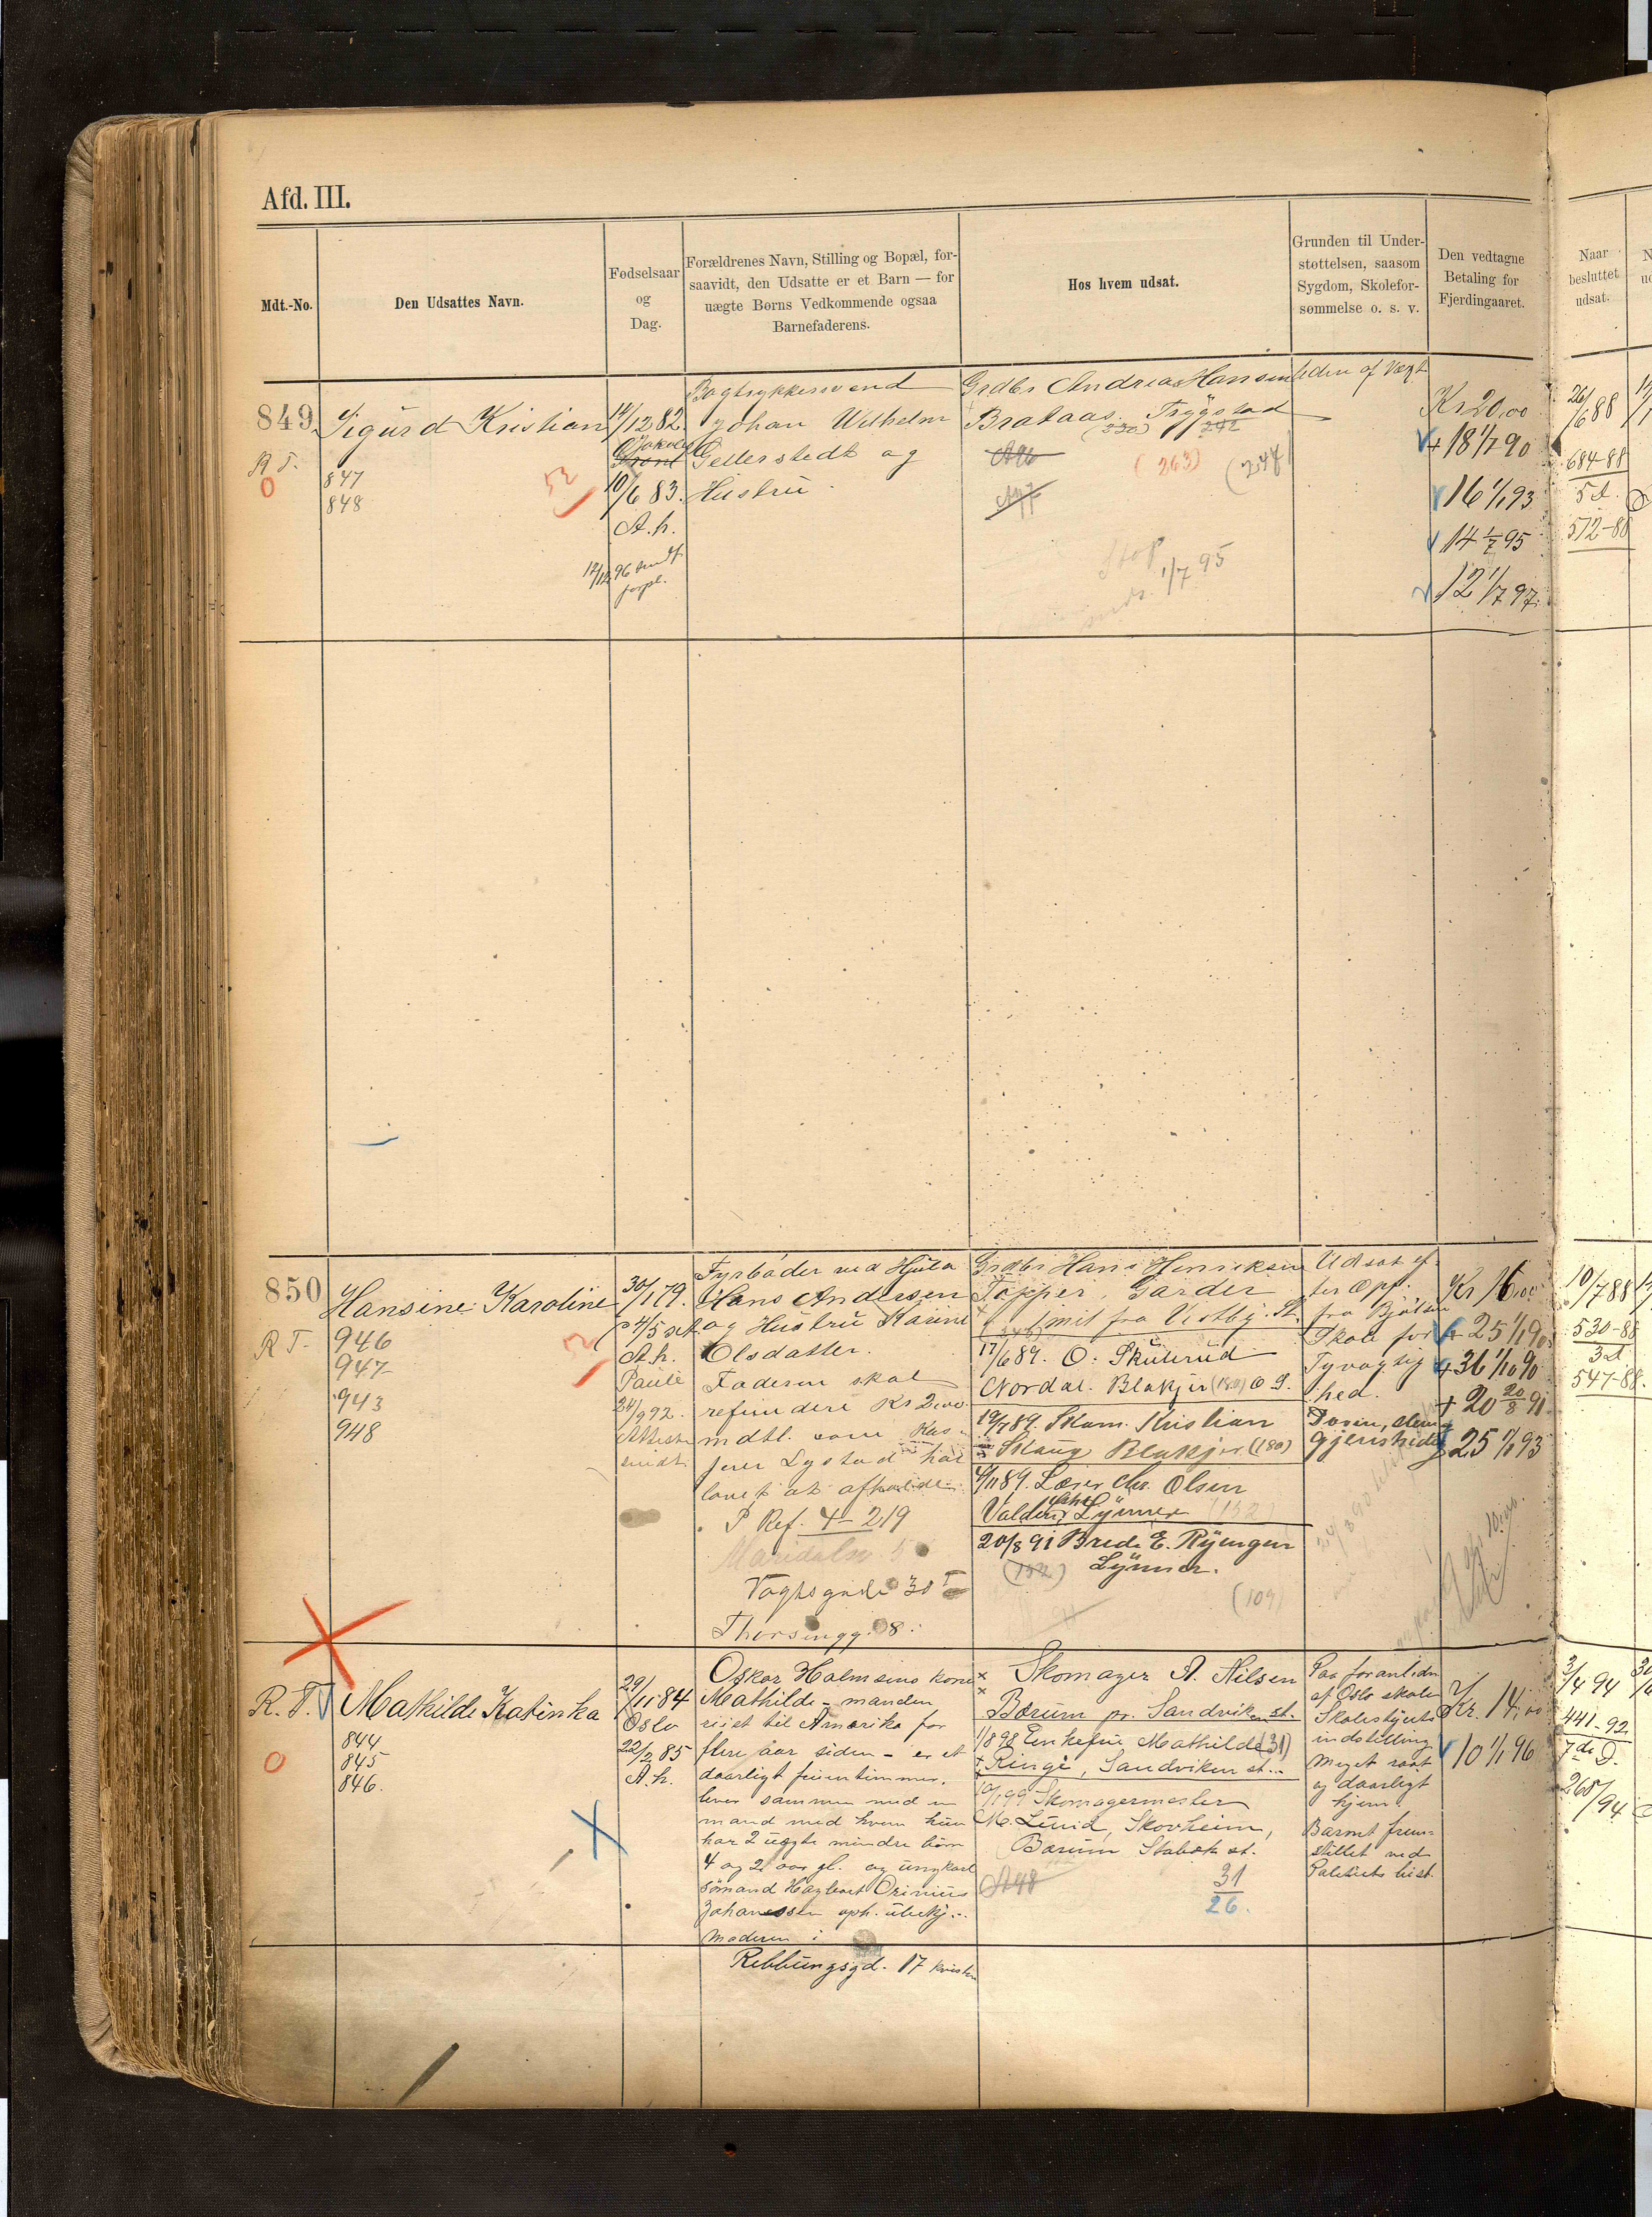 Afd. III.
Mdt.-No.
Den Udsattes Navn.
Fødselsaar
og
Dag.
Forældrenes Navn, Stilling og Bopæl, for-
saavidt, den Udsatte er et Barn — for
uægte Børns Vedkommende ogsaa
Barnefaderens.
Hos hvem udsat.
Grunden til Under-
støttelsen, saasom
Sygdom, Skolefor-
sømmelse o. s. v.
Den vedtagne
Betaling for
Fjerdingaaret.
Naar
besluttet
udsat.
849
R T.
0
Sigurd Kristian
847
848
52
14/12 82.
Jakobs
10/6 83.
A. h.
12/12 96 sendt
forpl.
Bogtrykkersvend
Johan Wilhelm
Gellerstedt og
Hustru.
Grdbr Andreas Hansen
Brataas. Trygstad
(330) 242
(263) (244)
Stop
1/7 95
Kr 20,00
+ 18 1/7 90
16 1/1 93
14 1/7 95
12 1/7 97.
26/6 88
684-88
5 A.
512-88
850
R T.
Hansine Karoline
946
947
943
948
52
30/1 79.
A. h.
Paule
24/9 92.
Attest
sendt
Fyrbøder ved Hjula
Hans Andersen
og Hustru Karine
Olsdatter.
Faderen skal
refundere Kr 2,00
mdtl. som Kas-
serer Lystad har
lovet at afholde
P Ref. 4-219
Maridalsv. 5
Vogtsgade 30
Thorsengg. 8.
Grdbr Hans Henriksen
Topper, Garder
1 mil fra Vestby. St.
17/6 89. O. Skulerud
Nordal. Blakjer (180) O S.
19/7 89. Skom. Kristian
Skaug Blakjer (180)
4/11 89. Læser Chr. Olsen
Valden, Lynner (132)
20/8 91 Brede E. Ryengen
(132) Lynner.
(109)
Udsat ef-
ter Opf.
fra Bjølsen
Skole for
Tyvagtig
hed.
Kr 16,00
+ 25 1/1 90
+ 36 1/10 90
+ 20 20/8 91
25 1/1 93
10/7 88
530-88
3 A
547-88.
R. T.
0
Mathilde Katinka
844
845
846.
29/11 84
Oslo
22/2 85
A. h.
Oskar Halmsens kone
Mathilde - manden
reist til Amerika for
flere aar siden - er et
daarligt fruentimmer.
lever sammen med en
mand med hvem hun
har 2 uægte mindre børn
4 og 2 aar gl. og ungkarl
sømand Hagbart Orinius
Johanessen oph. ubekj.
Moderen i
Rebbungsgd. 17 kvisten
Skomager A. Nilsen
Bærum pr. Sandviken st.
1/8 98 Enkefru Mathilde (31)
Ringe, Sandviken st.
10/1 99 Skomagermester
M. Lund, Skovheim,
Bærum Stabæk st.
A48
31
26.
Paa foranledn
af Oslo skole
Skolestyrets
indstilling
Meget raat
og daarligt
hjem.
Barnet frem-
stillet ved
Politiets bist.
Kr. 14,00
10 1/1 96
3/4 94
441-92
7de D.
265/94